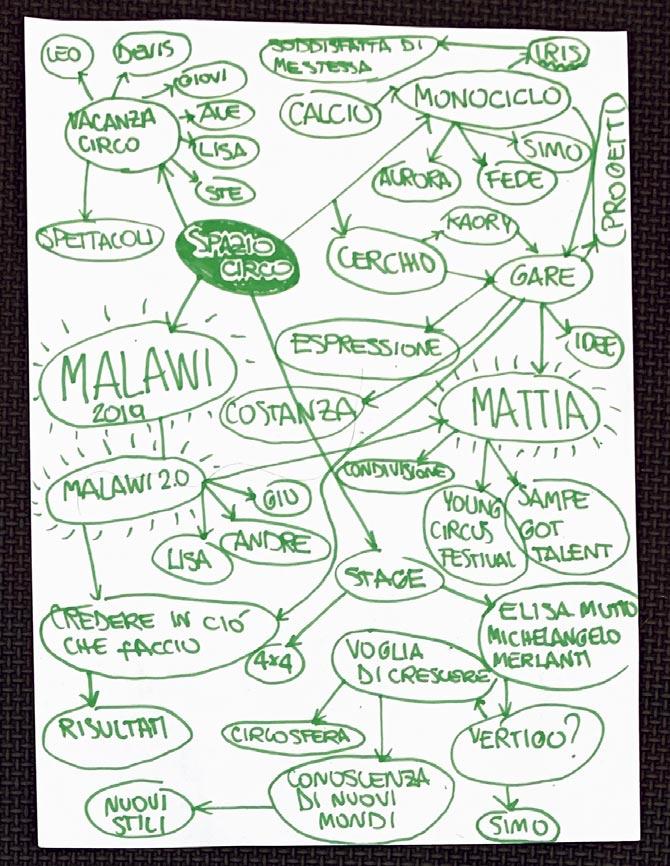 LEO
DEVIS
GIOVI
VACANZA
CIRCO
ALE
LISA
STE
SPETTACOLI
SODDISFATTA DI
ME STESSA
IRIS
CALCIO
MONOCICLO
PROGETTI
AURORA
FEDE
SIMO
SPAZIO
CIRCO
CERCHIO
KAORY
GARE
ESPRESSIONE
IDEE
MALAWI
2019
COSTANZA
MATTIA
MALAWI 2.0
GIU
ANDRE
LISA
CONDIVISIONE
YOUNG
CIRCUS
FESTIVAL
SAMPE
GOT
TALENT
STAGE
CREDERE IN CIÒ
CHE FACCIO
4x4
ELISA MUTTO
MICHELANGELO
MERLANTI
VOGLIA
DI CRESCERE
RISULTATI
CIRCOSFERA
VERTIGO?
CONOSCENZA
DI NUOVI
MONDI
NUOVI
STILI
SIMO